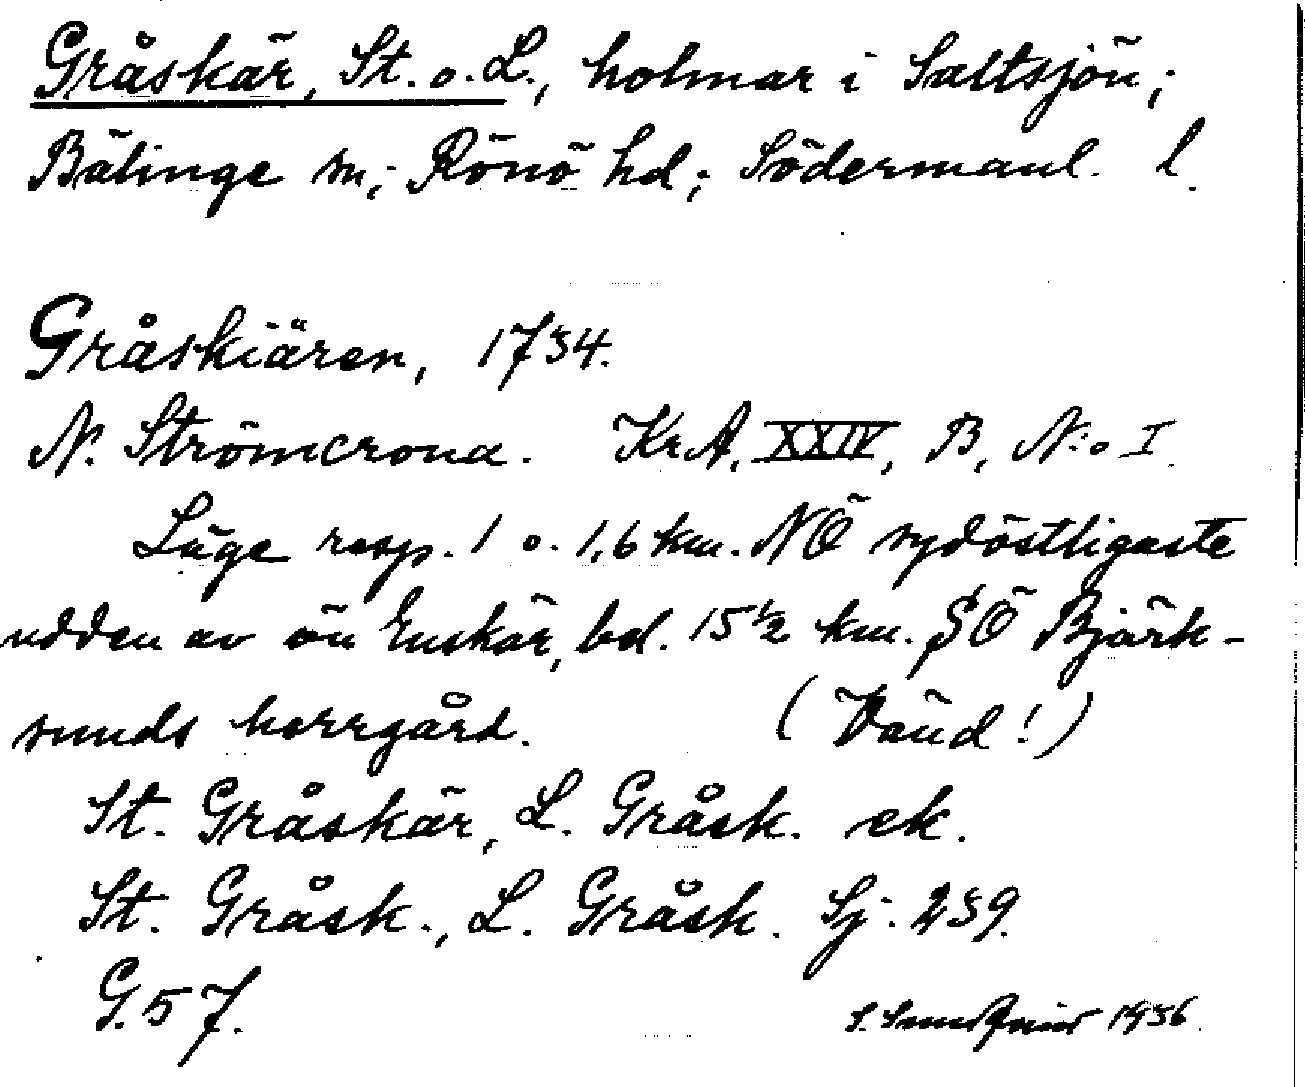 Gråskär, St. o. L., holmar i Saltsjön;
Bälinge sn; Rönö hd; Södermanl. l.
Gråskiären, 1734.
N. Strömcrona. KrA, XXIV, B, N:o I.
Läge resp. 1 o. 1,6 km. NÖ sydöstligaste
udden av ön Enskär, bel. 15 1/2 km. SÖ Björk-
sunds herrgård. (Vänd!)
St. Gråskär, L. Gråsk. ek.
St. Gråsk., L. Gråsk. Sj. 239.
G. 57.
S. 1936.